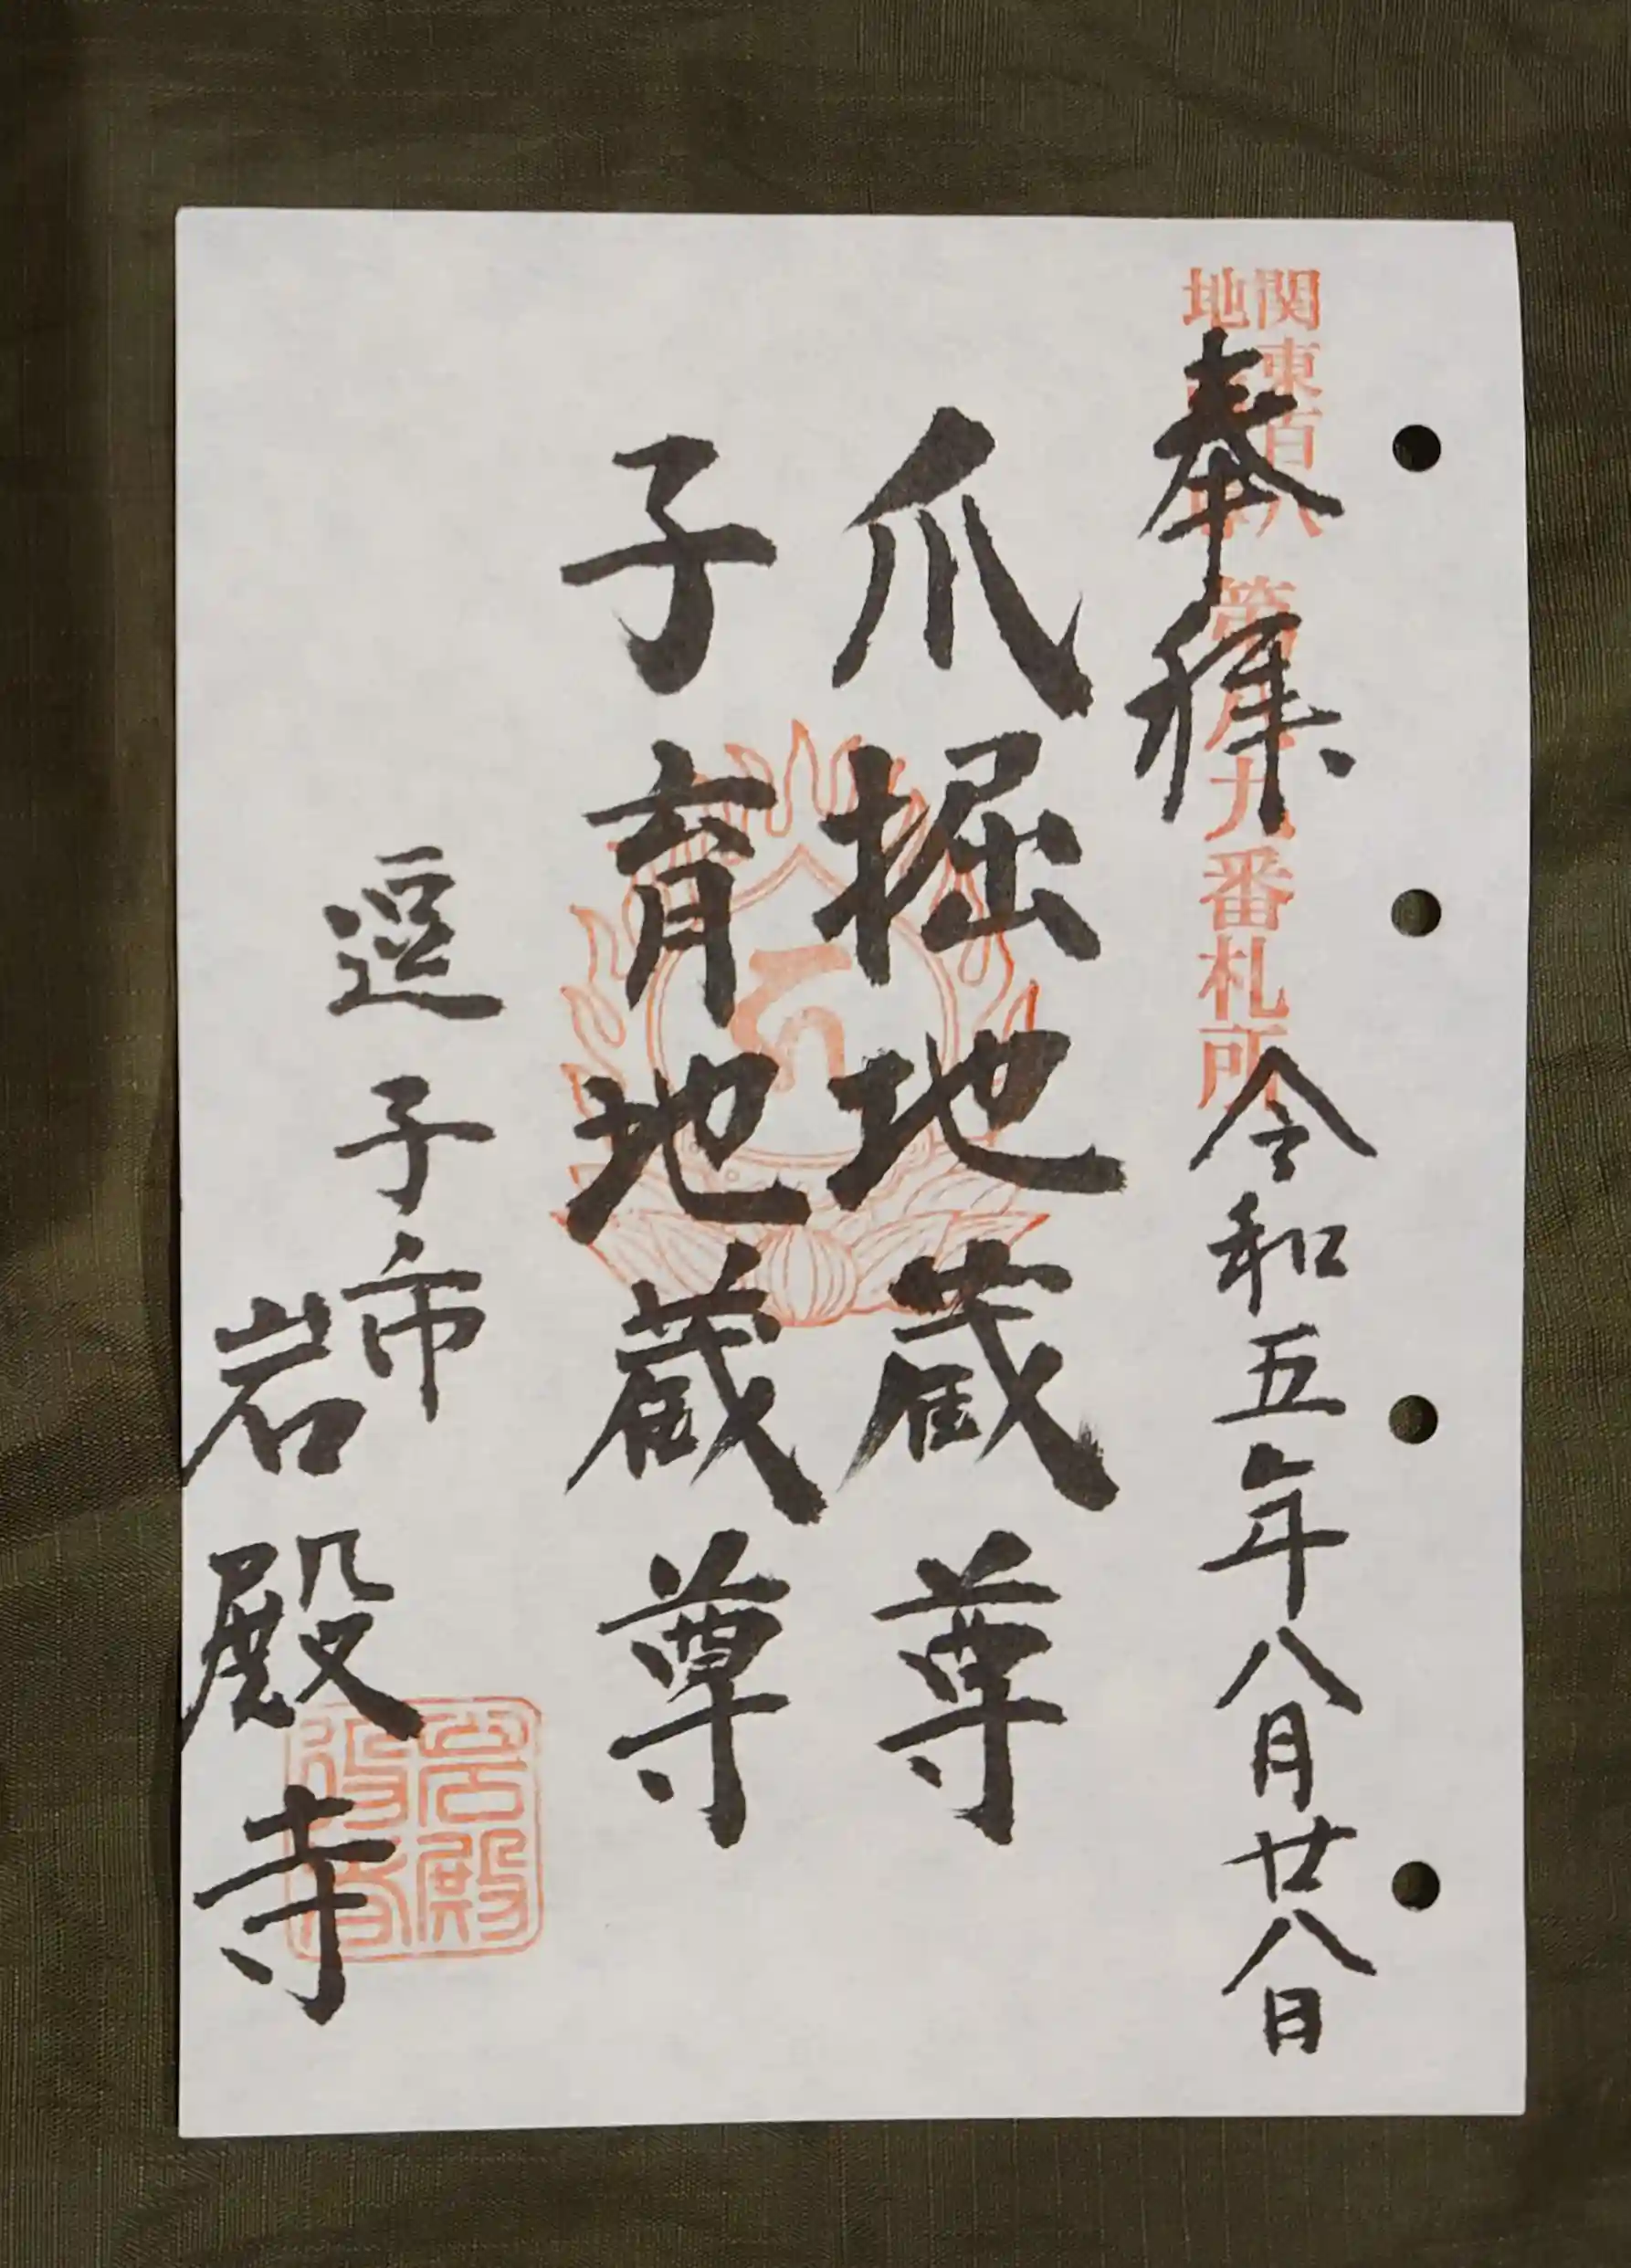 関東百八
地
番札所
奉拝
令和五年八月廿八日
爪掘地蔵尊
子育地蔵尊
逗子市
岩殿寺